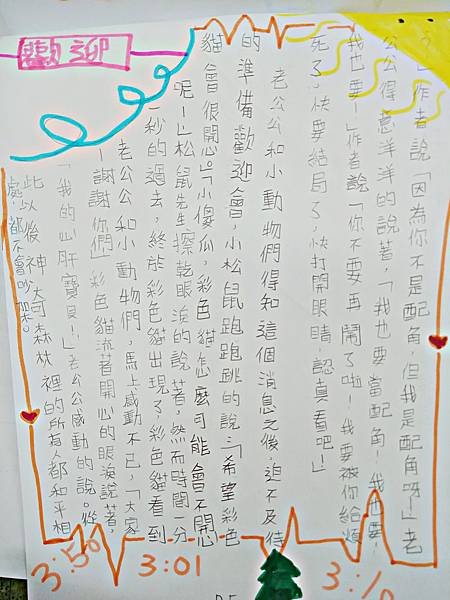 歡迎
？」作者說「因為你不是配角，但我是配角呀！」老
公公得意洋洋的說著，「我也要當配角！我也要！
我也要！」作者說「你不要再鬧了啦！我要被你給煩
死了，快要結局了，快打開眼睛，認真看吧！」
老公公和小動物們得知這個消息之後，迫不及待
的準備歡迎會，小松鼠跑跑跳的說：「希望彩色
貓會很開心。」「小傻瓜，彩色貓怎麼可能會不開心
呢！」松鼠先生擦乾眼淚的說著，然而時間一分
一秒的過去，終於彩色貓出現了，彩色貓看到
老公公和小動物們，馬上感動不已，「大家
！謝謝你們」彩色貓流著開心的眼淚說著，
「我的心肝寶貝！」老公公感動的說。從
此以後神奇森林裡的所有人都和平相
處，都不會吵架。
3:50
3:01
3:10